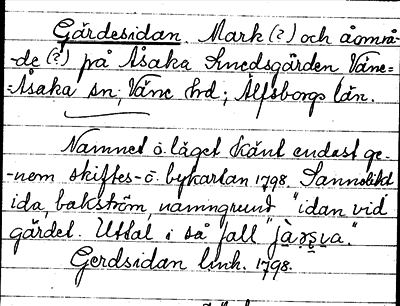 Gärdesidan. Mark (?) och åområ-
-de (?) på Åsaka Smedsgården Väne-
=Åsaka sn; Väne hd; Älfsborgs län.
Namnet o. läget känt endast ge-
-nom skiftes- o. bykartan 1798. Sannolikt
ida, bakström, namngrund "idan vid
gärdet. Uttal i så fall
Gerdsidan link. 1798.